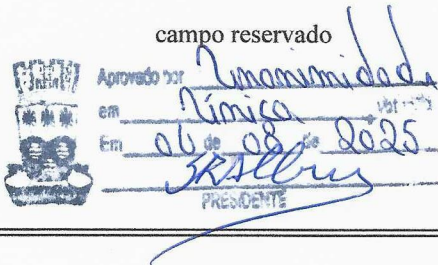 campo reservado
Aprovado por Unanimidade
em Única votação
Em 06 de 08 de 2025
PRESIDENTE